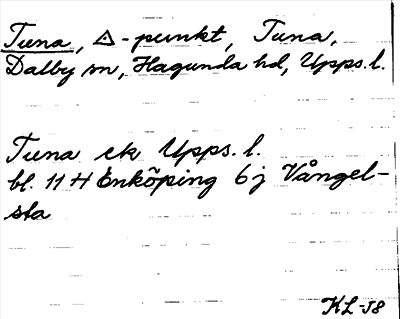 Tuna, △-punkt, Tuna,
Dalby sn, Hagunda hd, Upps. l.
Tuna ek Upps. l.
bl. 11 H Enköping 6j Vångel-
sta
KL-58